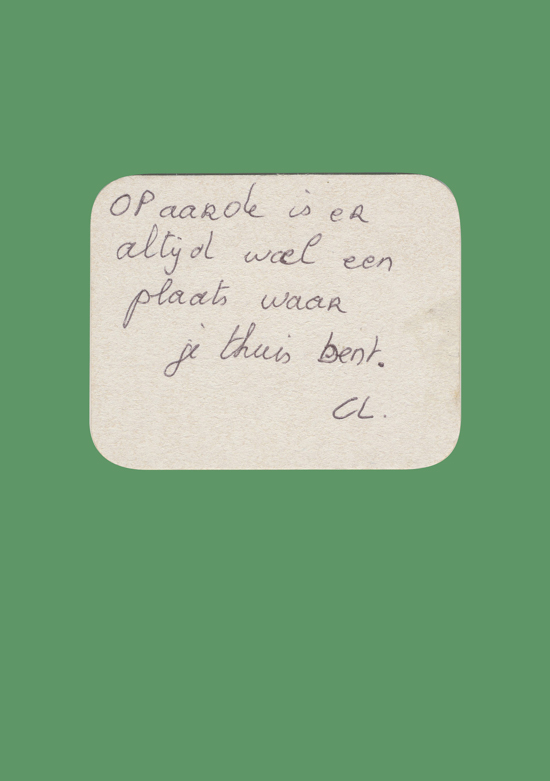 OP aarde is er
altijd wel een
plaats waar
je thuis bent.
CL.